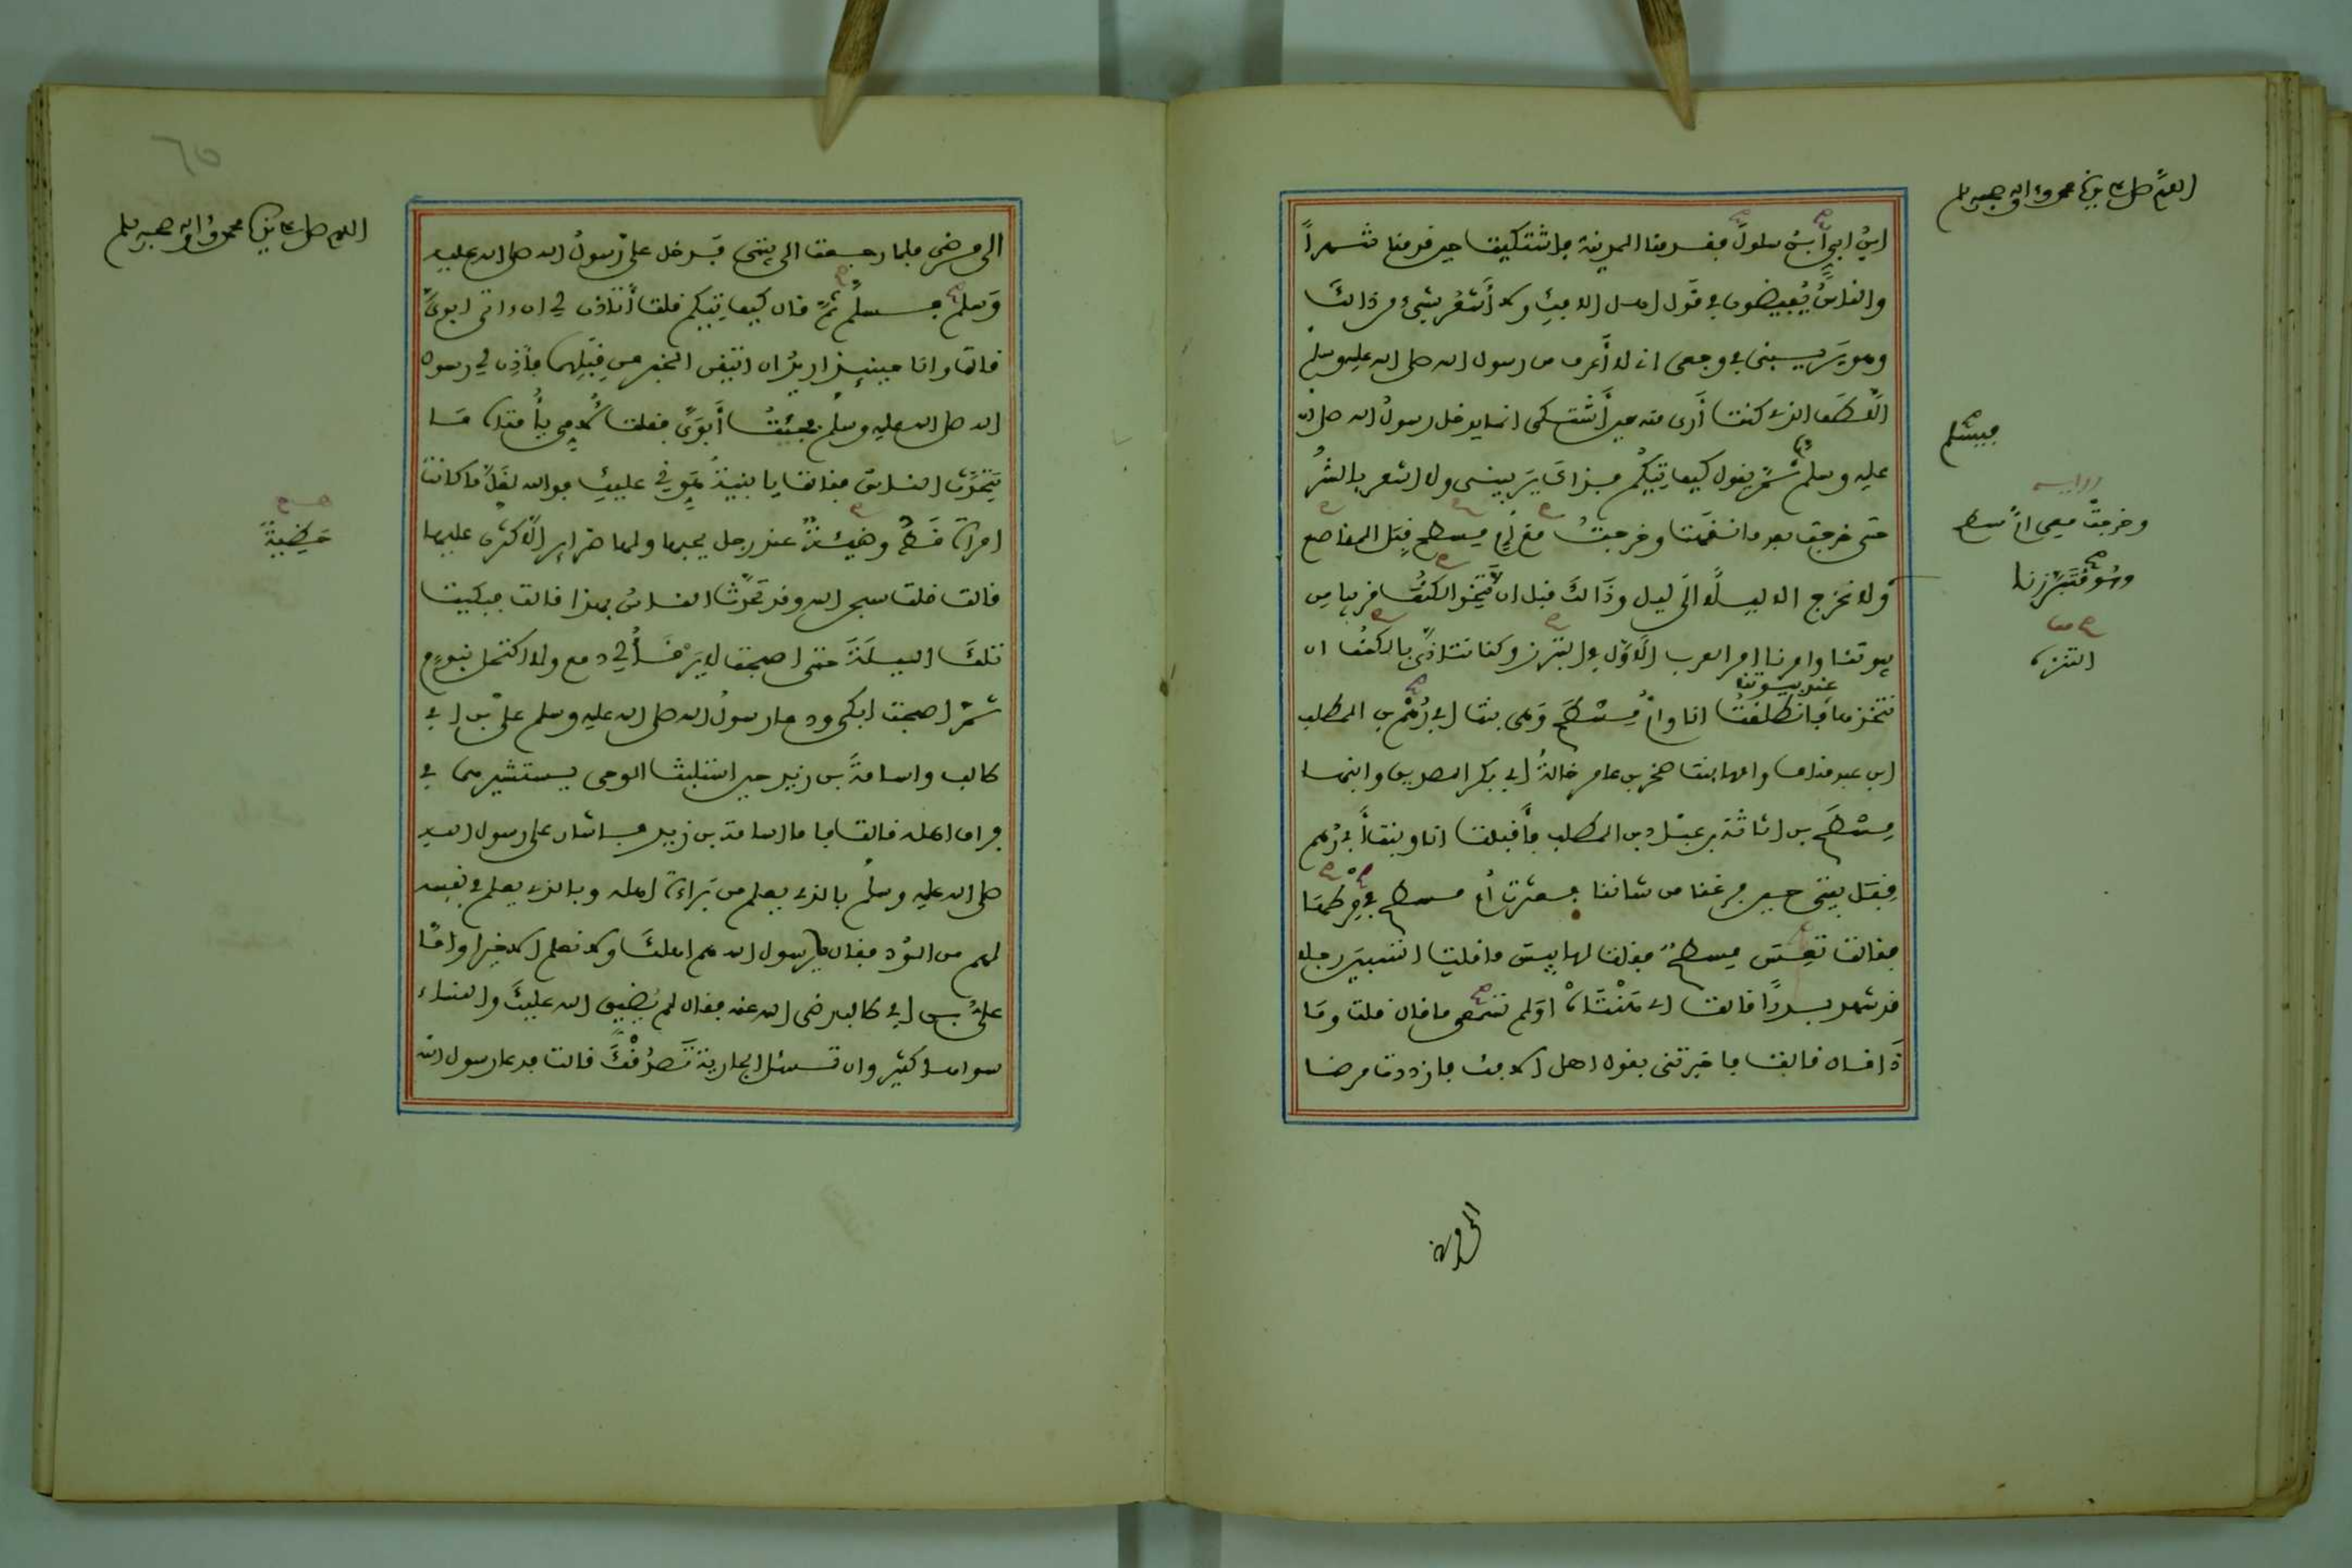 اللهم صل على نبينا محمد وءاله وصحبه وسلم
ابنُ ابيّ ابنُ سلولَ فقدمنا المدينة فاشتكيت حين قدمنا شهراً
والناسُ يُفيضون في قَول اهل الافكِ ولا أَشعُر بشيءٍ من ذالك
وهو يَريبني في وجعي اني لا أَعرف من رسول الله صلى الله عليه وسلم
اللُّطفَ الذي كنت أَرى منه حين أَشتكي انما يدخل رسولُ الله صلى الله
عليه وسلم ثمَّ يقول كيف تيكُم فذاكَ يَريبني ولا اشعر بالشرِّ
حتى خرجت بعد ما نقَهت وخرجتُ مع أمِّ مسطح قِبَل المناصع
ولا نخرج الا ليلاً الَى ليل وذَالكَ قبل ان نَتَّخذ الكنُفَ قريبا من
بيوتنا وامرنا امر العرب الاوَّل في التبرز وكنا نتاذَّى بالكنُف ان
نتخذها عند بيوتنا فانطلقتُ انا وامُّ مِسْطَح وَهي بنت ابي رُهْم بن المطلب
ابن عبد مناف وامها بنت صخر بن عامر خالةُ ابي بكر الصديق وابنها
مِسْطَح بن اثاثة بن عبَّاد بن المطلب فأَقبلت انا وبنت أَبي رُهم
قِبَل بيتي حين فرغنا من شاننا فعثرت أُمُّ مسطح في مِرْطها
فقالت تعِسَ مِسطحٌ فقلت لها بيسَ ما قلتِ اتسبين رجلا
قد شهد بدرًا قالت اي هَنْتَاهْ اوَلم تسمعي ما قال قلت ومَا
ذَا قال قالت فاخبرتني بقول اهل الافك فازددت مرضا
فيسلم
رواية
وخرجت معي امُّ مسطح
وهُو مُتَبَرَّزنا
معا
التنزه
الى مرضي
اللهم صل على نبينا محمد وءاله وصحبه وسلم
الى مرضي فلما رجعت الى بيتي فدخل علىَّ رسولُ الله صلى الله عليه
وَسلم فسلَّم ثمَّ قال كيف تيكم فقلت أتاذن لي ان ءاتي ابويَّ
قالت وانا حينيذ اريدُ ان اتيقن الخبر من قِبَلِهما فأَذِن لي رسول
الله صلى الله عليه وسلم فجئتُ أَبَوَيَّ فقلت لأُمي يأُمتاه مَا
يَتحدَّث الناس فقالت يا بنيةُ هَوِّني عليكِ فوالله لقَلَّ ما كانت
امرأَة قَطُّ وضيئةٌ عند رجل يحبها ولها ضراير الا كثَّرن عليها
قالت قلت سبحن الله وقد تحدَّث الناسُ بهذا قالت فبكيت
تلكَ الليلَةَ حتى اصبحت لا يَرْقأُ لي دمع ولا اكتحل بنوم
ثمَّ اصبحت ابكي ودعا رسولُ الله صلى الله عليه وسلم علىَّ بن ابي
طالب واسامةَ بن زيد حين استلبث الوحي يستشيرهما في
فراق اهله قالت فاما اسامة بن زيد فاشار على رسول الله
صلى الله عليه وسلم بالذي يعلم من بَراءَة اهله وبالذي يعلم في نفسه
لهم من الوُد فقال يا رسول الله هم اهلكَ ولا نعلم الا خيرا وامَّا
علىُّ بن ابي طالب رضي الله عنه فقال لم يُضيق الله عليكَ والنساء
سواها كثير وان تسئل الجارية تَصدُقْكَ قالت فدعا رسول الله
حَظِيَّةٌ
٦٥